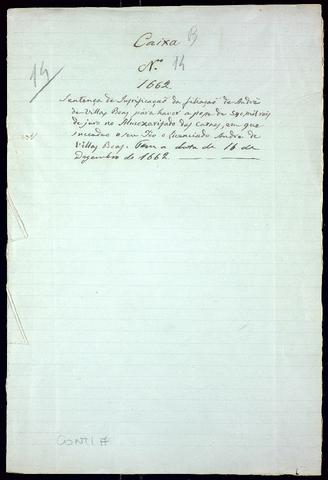 Caixa B
14
Nº 14
1662
Sentença de Justificação da filiação de André
de Villas Boas para haver a posse de 580,000 reis
de juro no Almoxarifado das Carnes, em que
succedeo o seu Tio o Licenciado André de
Villas Boas. Tem a data de 16 de
Dezembro de 1662